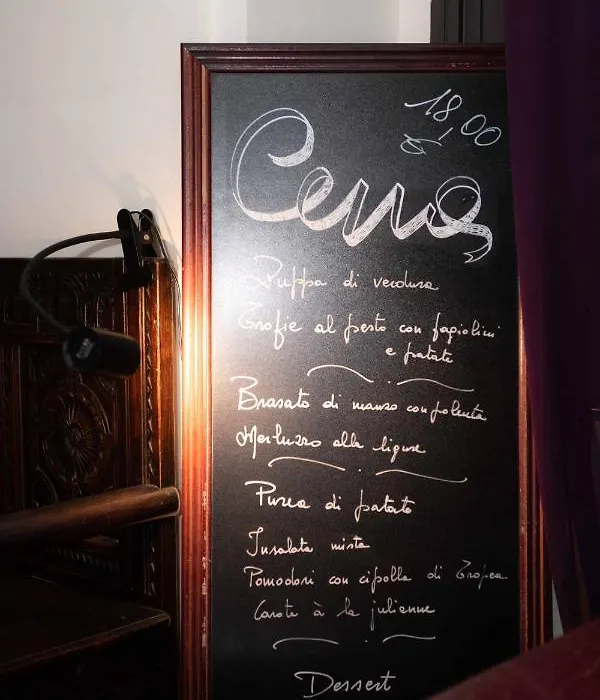 18,00
Cena
Zuppa di verdura
Trofie al pesto con fagiolini
e patate
Brasato di manzo con polenta
Merluzzo alla ligure
Purea di patate
Insalata mista
Pomodori con cipolla di Tropea
Carote à la julienne
Dessert